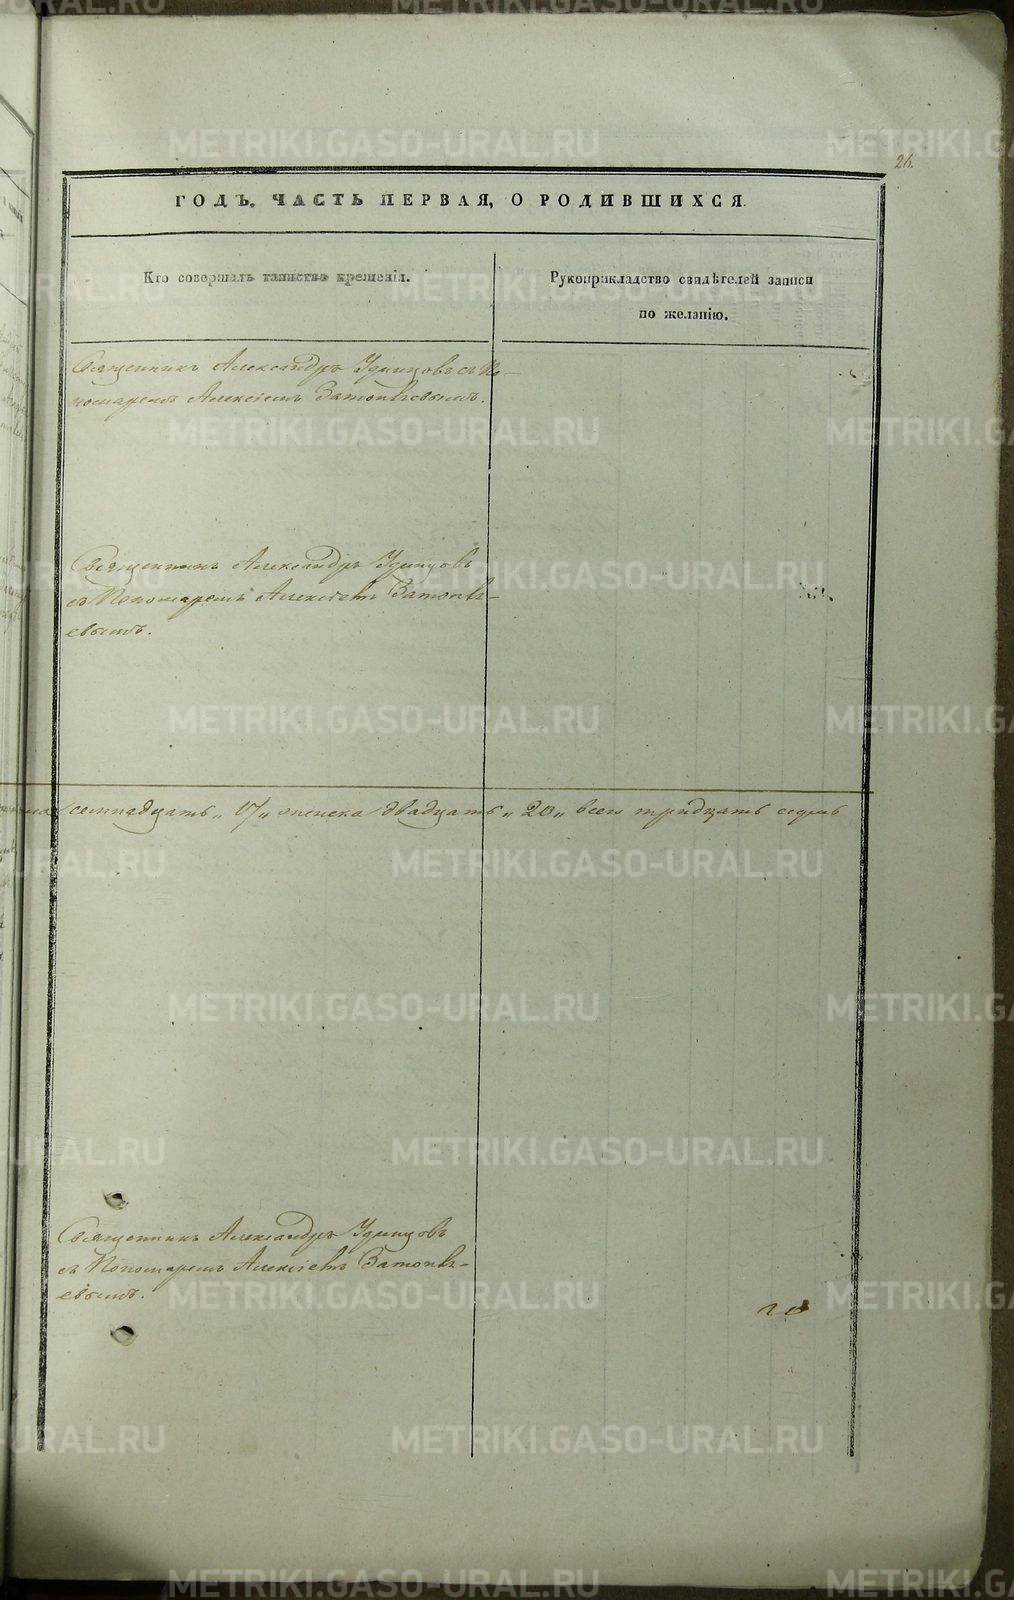 26.
ГОДЪ. ЧАСТЬ ПЕРВАЯ, О РОДИВШИХСЯ.
Кто совершалъ таинство крещенія.
Рукоприкладство свидѣтелей записи
по желанію.
Священникъ Александръ Удинцовъ съ По-
номаремъ Алексѣемъ
Священникъ Александръ Удинцовъ
съ Пономаремъ Алексѣемъ
евымъ.
семнадцать „17„ женска двадцать „20„ всего тридцать седмь
Священникъ Александръ Удинцовъ
съ Пономаремъ Алексѣемъ
евымъ.
METRIKI.GASO-URAL.RU